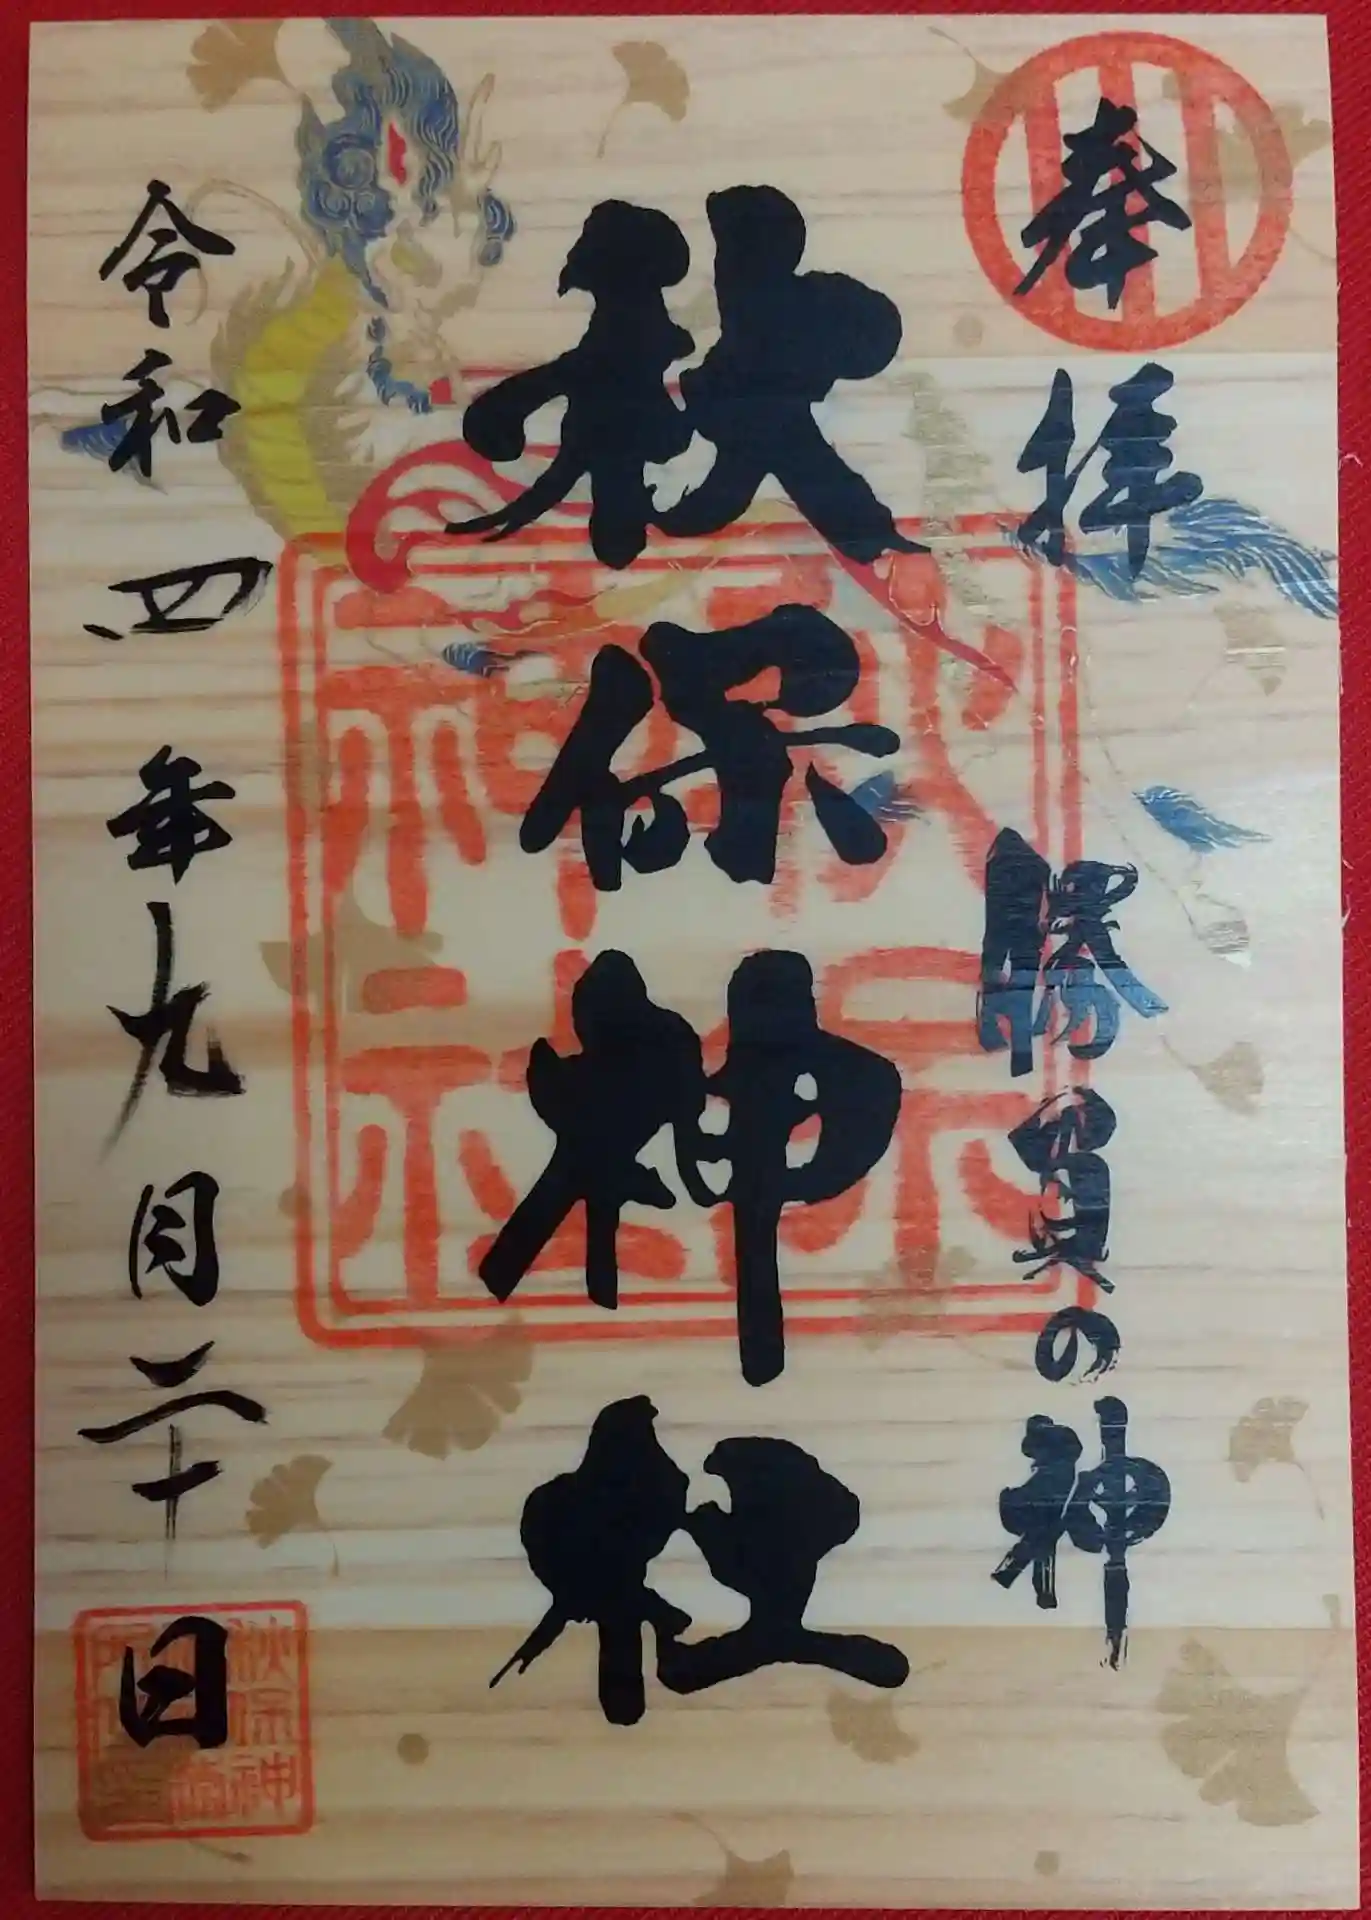 奉拝
勝負の神
秋保神社
秋保
神社
令和四年九月二十日
秋保神